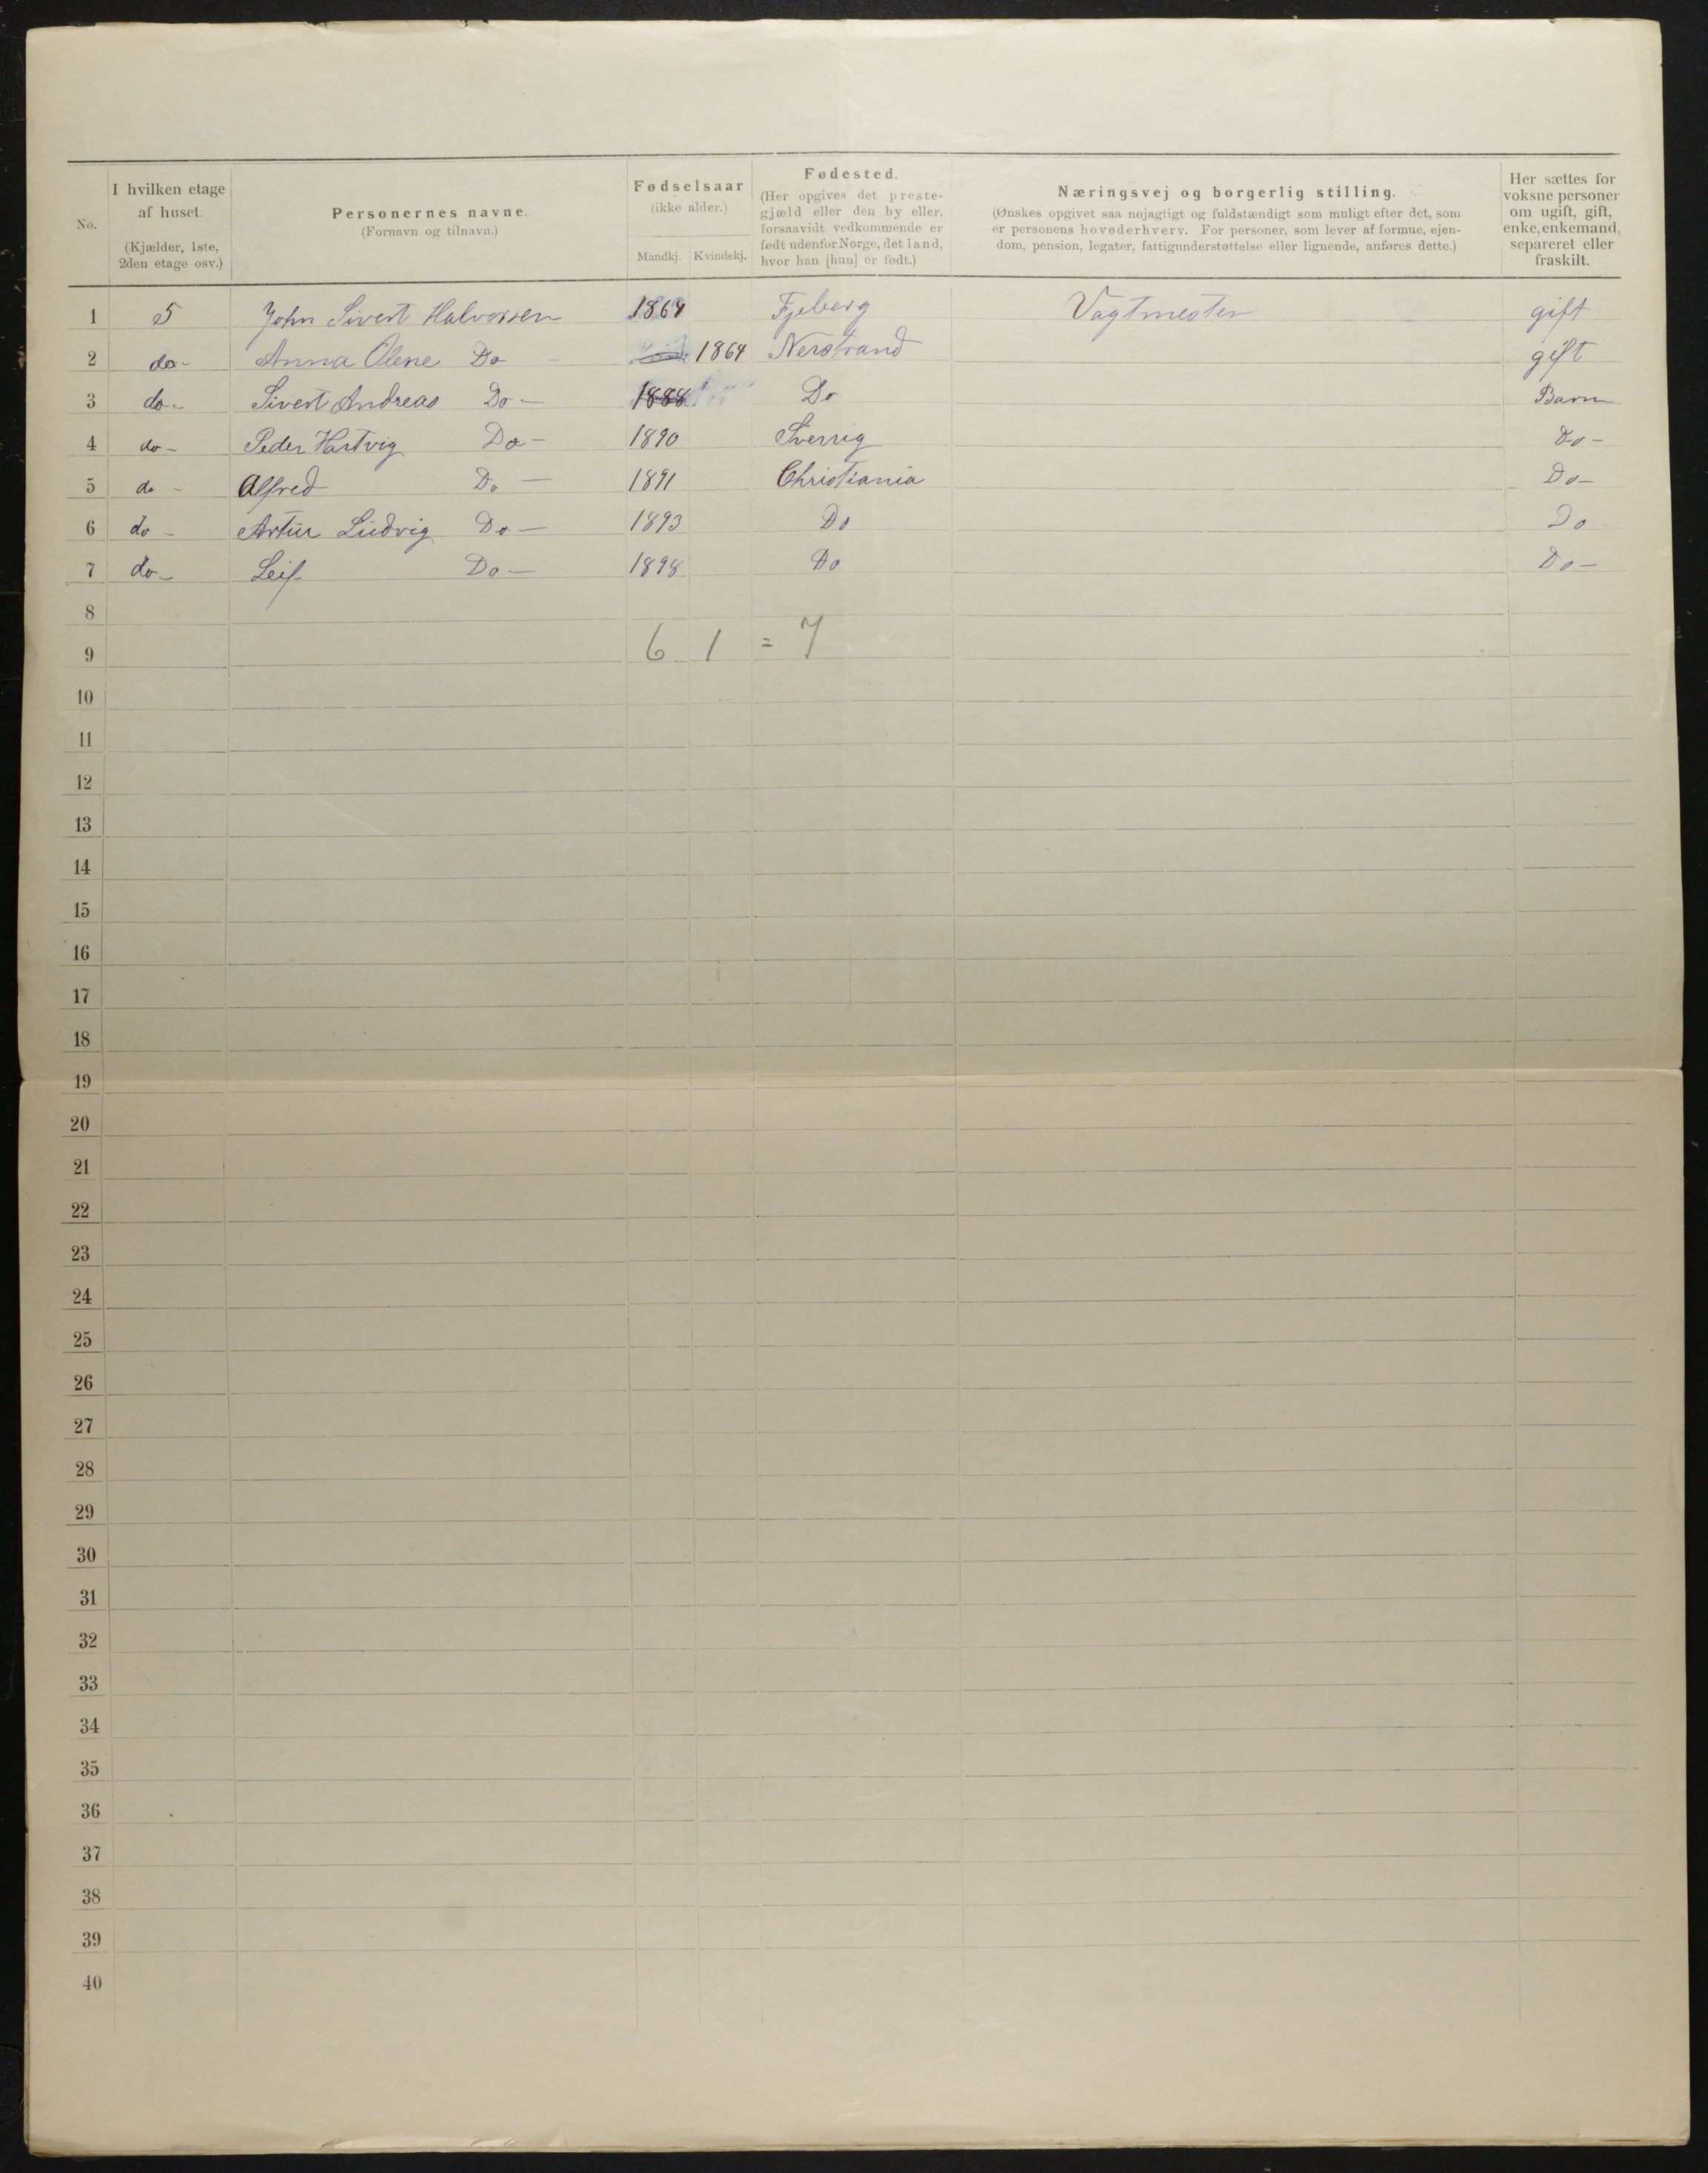 No. | I hvilken etage af huset. (Kjælder, 1ste, 2den etage osv.) | Personernes navne. (Fornavn og tilnavn.) | Fødselsaar (ikke alder.) Mandkj. Kvindekj. | Fødested. (Her opgives det prestegjæld eller den by eller, forsaavidt vedkommende er født udenfor Norge, det land, hvor han [hun] er født.) | Næringsvej og borgerlig stilling. (Ønskes opgivet saa nøjagtigt og fuldstændigt som muligt efter det, som er personens hovederhverv. For personer, som lever af formue, ejendom, pension, legater, fattigunderstøttelse eller lignende, anføres dette.) | Her sættes for voksne personer om ugift, gift, enke, enkemand, separeret eller fraskilt.
1 5 John Sivert Halvorsen 1864 Fjeberg Vagtmester gift
2 do- Anna Olene Do - 1864 Nerstrand gift
3 do- Sivert Andreas Do - 1888 Do Barn
4 do- Peder Hartvig Do - 1890 Sverrig Do -
5 do - Alfred Do - 1891 Christiania Do -
6 do - Artur Ludvig Do - 1893 Do Do
7 do - Leif Do - 1898 Do Do -
8
9 6 1 = 7
10
11
12
13
14
15
16
17
18
19
20
21
22
23
24
25
26
27
28
29
30
31
32
33
34
35
36
37
38
39
40